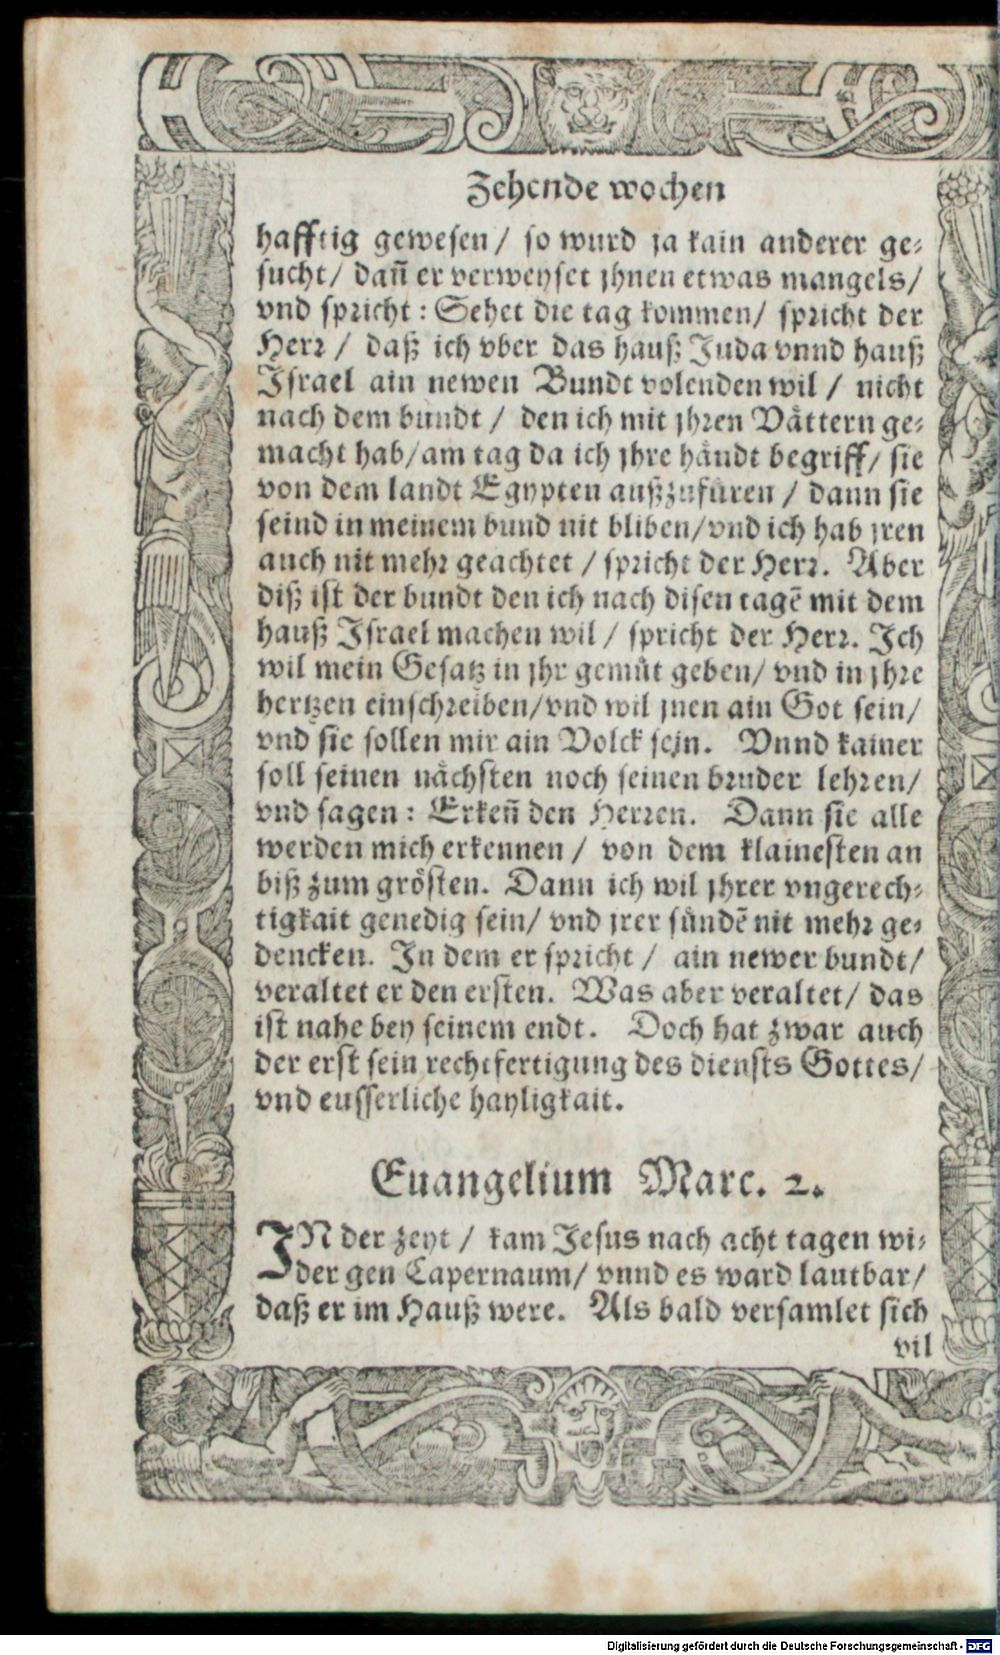 Zehende wochen
hafftig gewesen / so wurd ja kain anderer ge-
sucht / dañ er verweyset jhnen etwas mangels /
vnd spricht : Sehet die tag kommen / spricht der
Herr / daß ich vber das hauß Juda vnnd hauß
Israel ain newen Bundt volenden wil / nicht
nach dem bundt / den ich mit jhren Vättern ge-
macht hab / am tag da ich jhre händt begriff / sie
von dem landt Egypten außzufüren / dann sie
seind in meinem bund nit bliben / vnd ich hab jren
auch nit mehr geachtet / spricht der Herr. Aber
diß ist der bundt den ich nach disen tagē mit dem
hauß Israel machen wil / spricht der Herr. Ich
wil mein Gesatz in jhr gemüt geben / vnd in jhre
hertzen einschreiben / vnd wil jnen ain Got sein /
vnd sie sollen mir ain Volck sein. Vnnd kainer
soll seinen nächsten noch seinen bruder lehren /
vnd sagen : Erkeñ den Herren. Dann sie alle
werden mich erkennen / von dem klainesten an
biß zum grösten. Dann ich wil jhrer vngerech-
tigkait genedig sein / vnd jrer sündē nit mehr ge-
dencken. In dem er spricht / ain newer bundt /
veraltet er den ersten. Was aber veraltet / das
ist nahe bey seinem endt. Doch hat zwar auch
der erst sein rechtfertigung des diensts Gottes /
vnd eusserliche hayligkait.
Euangelium Marc. 2.
IN der zeyt / kam Jesus nach acht tagen wi-
der gen Capernaum / vnnd es ward lautbar /
daß er im Hauß were. Als bald versamlet sich
vil
Digitalisierung gefördert durch die Deutsche Forschungsgemeinschaft - DFG